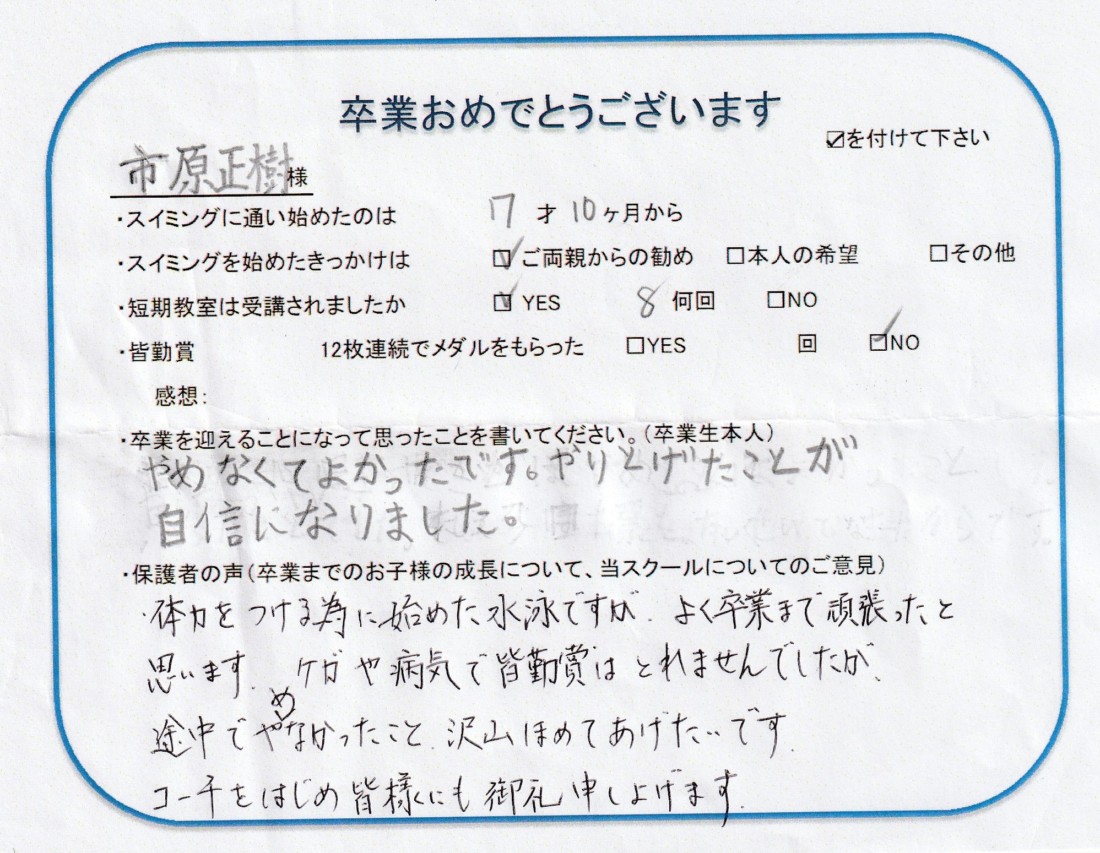 卒業おめでとうございます
☑を付けて下さい
市原正樹様
・スイミングに通い始めたのは 7才10ヶ月から
・スイミングを始めたきっかけは ☑ご両親からの勧め □本人の希望 □その他
・短期教室は受講されましたか ☑YES 8何回 □NO
・皆勤賞 12枚連続でメダルをもらった □YES 回 ☑NO
感想:
・卒業を迎えることになって思ったことを書いてください。(卒業生本人)
やめなくてよかったです。やりとげたことが
自信になりました。
・保護者の声(卒業までのお子様の成長について、当スクールについてのご意見)
・体力をつける為に始めた水泳ですが、よく卒業まで頑張ったと
思います。ケガや病気で皆勤賞はとれませんでしたが、
途中でやめなかったこと、沢山ほめてあげたいです。
コーチをはじめ皆様にも御礼申し上げます。